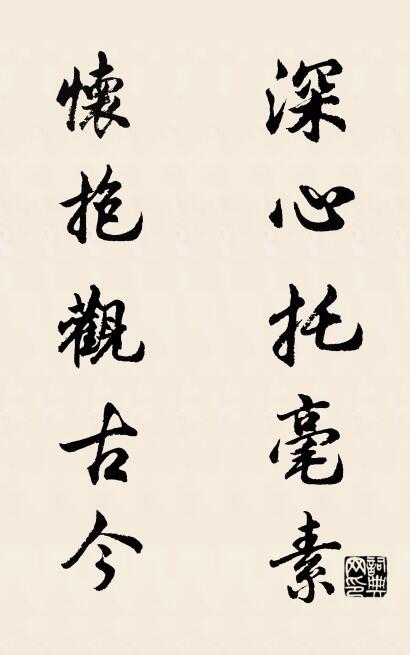 深心托毫素
懷抱觀古今
詞典網印